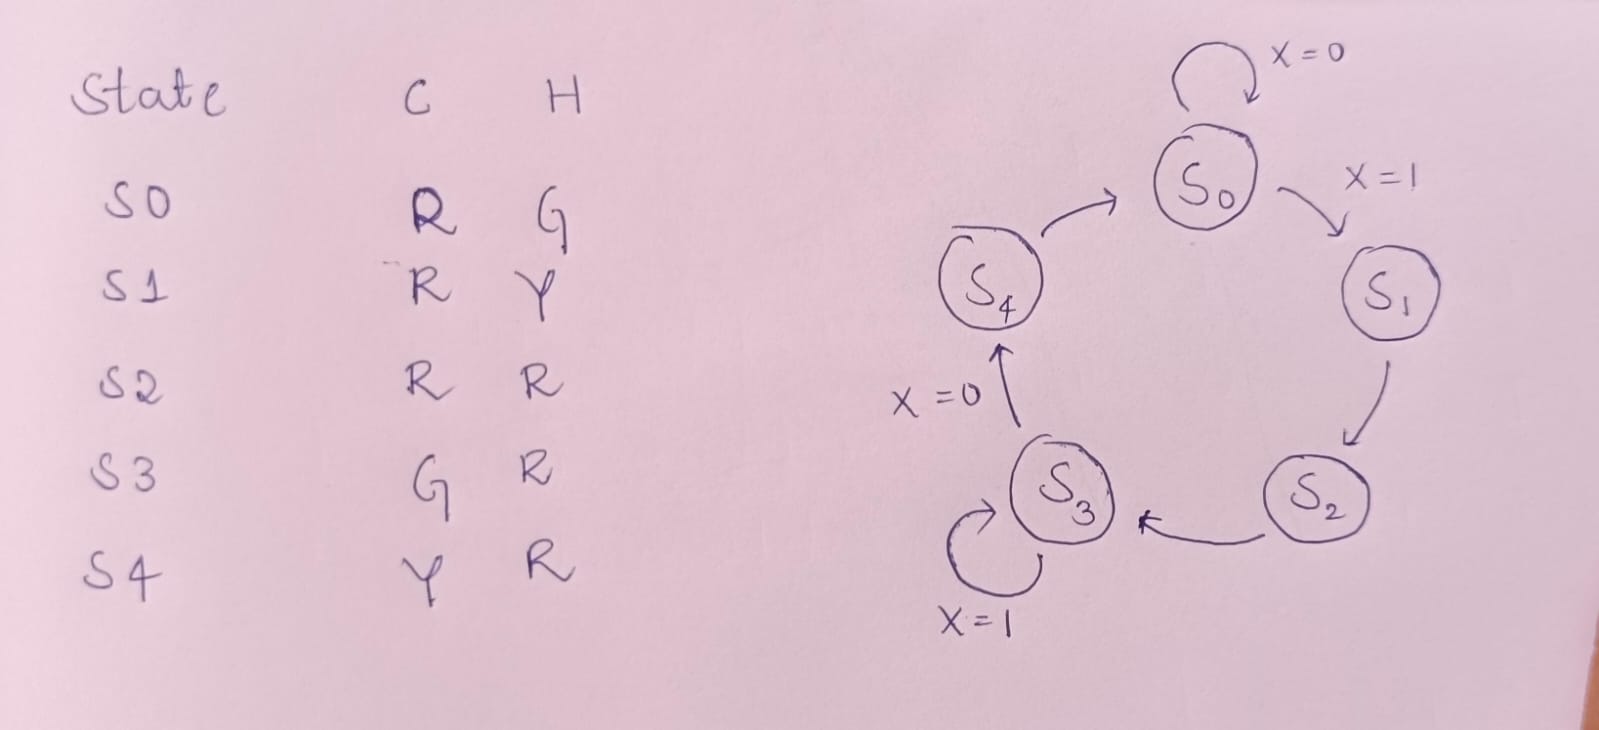 State C H
S0 R G
S1 R Y
S2 R R
S3 G R
S4 Y R
X = 0
S0
X = 1
S4
S1
X = 0
S3
S2
X = 1